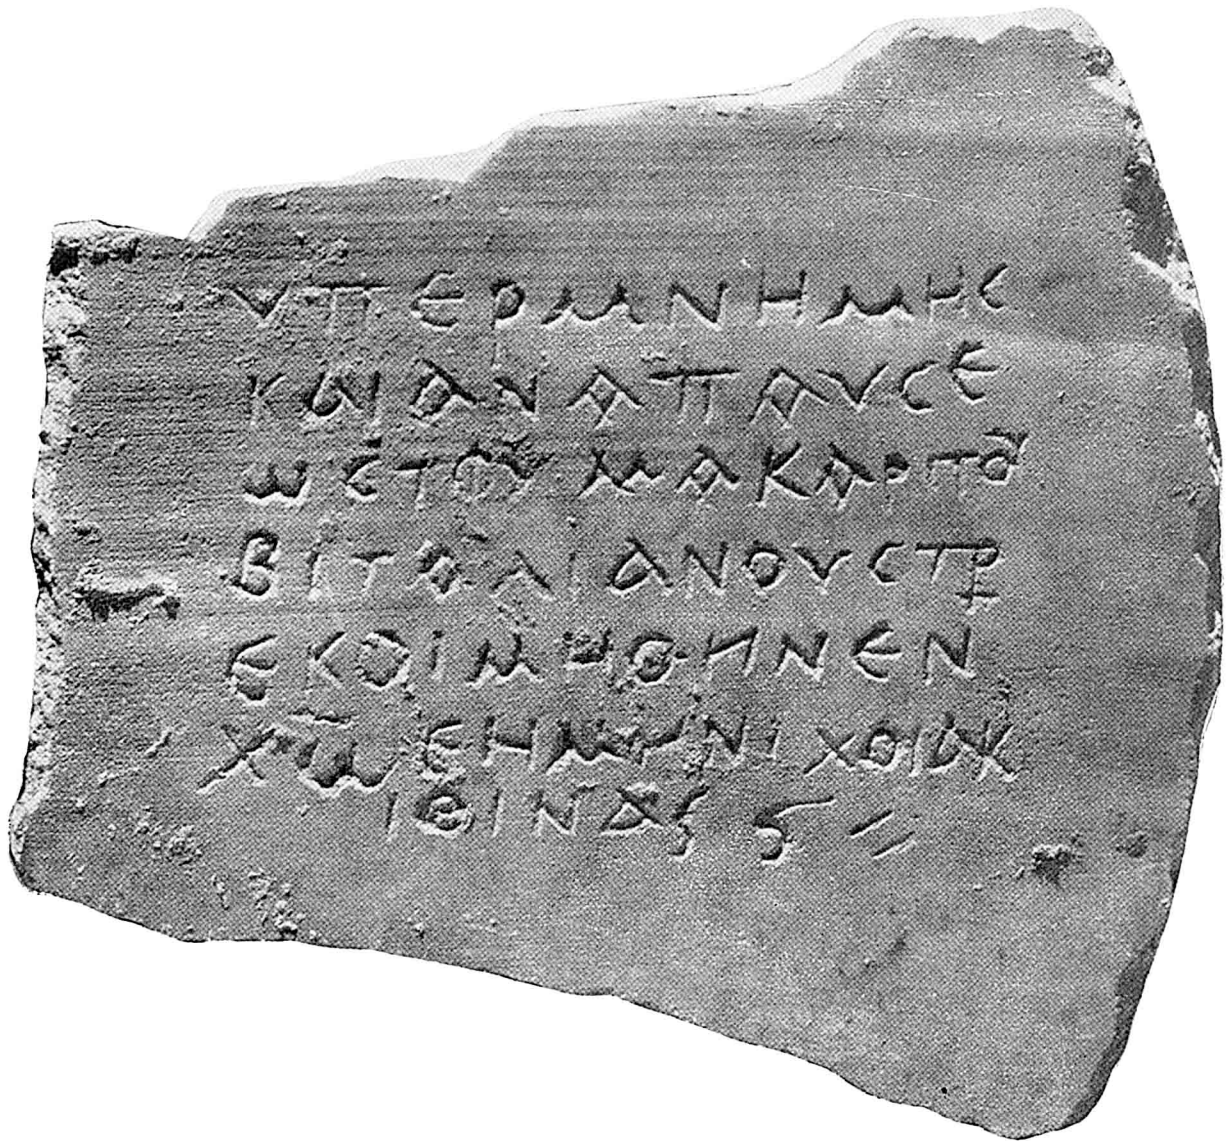 ΥΠΕΡΜΝΗΜΗС
ΚΑΙΑΝΑΠΑΥСΕ
ωСΤΟΥΜΑΚΑΡΙΤȣ
ΒΙΤΑΛΙΑΝΟΥСΤΡ
ΕΚΟΙΜΗΘΗΝΕΝ
Χω ΕΗΜΗΝΙΧΟΙΑΚ
ΙΘΙΝΔS Ϛ //